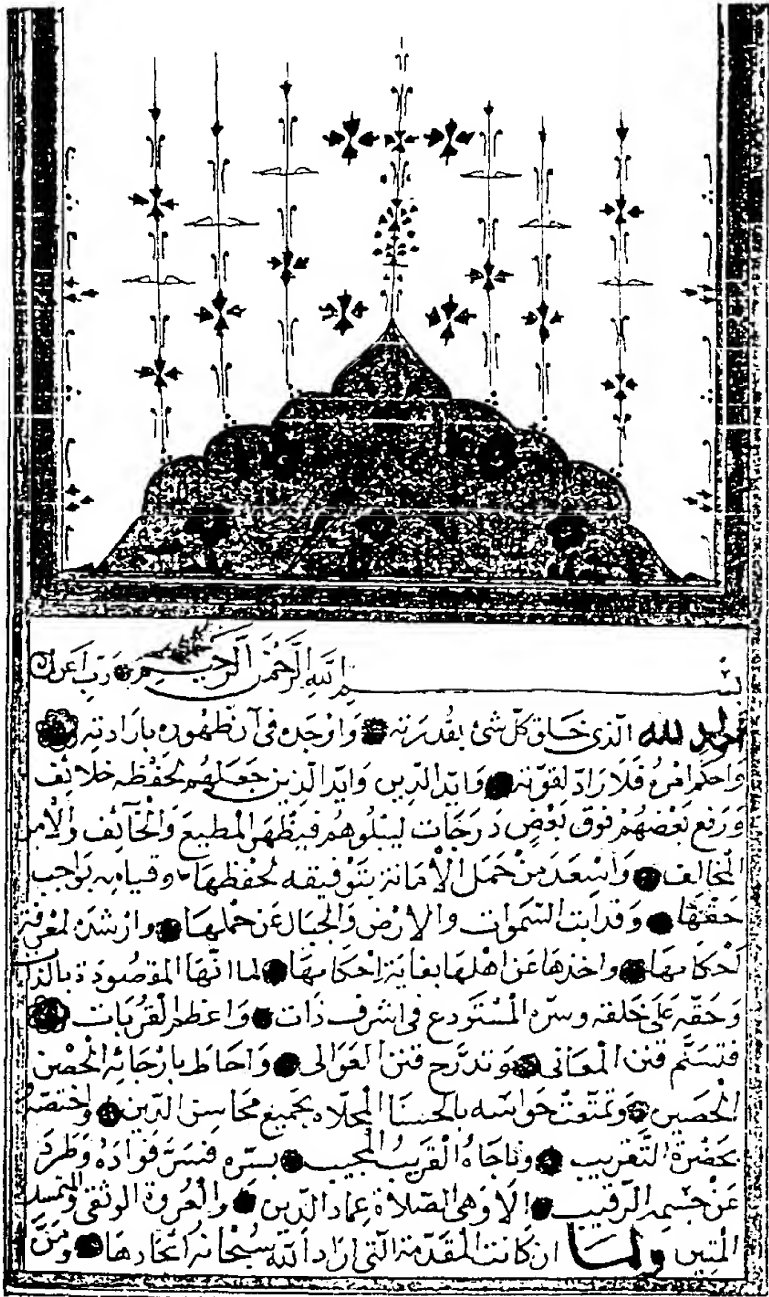 بسم الله الرحمن الرحيم رب أعن
الحمد لله الذى خلق كل شئ بقدرته وأوجده فى آن ظهوره بإرادته
وأحكم أمره فلا راد لقوته وأيد الدين وأيد الذين جعلهم لحفظه خلائف
ورفع بعضهم فوق بعض درجات ليبلوهم فيظهر المطيع والخائف والآمن
المخالف وأسعد من حمل الأمانة بتوفيقه لحفظها وقيامه بواجب
حقها وقد أبت السموات والأرض والجبال عن حملها وأرشد لمعرفة
أحكامها وأخذها عن أهلها بغاية إحكامها لما أنها المقصودة بالذات
وحقه على خلقه وسره المستودع فى اشرف ذات وأعظم القربات
فتسنم قنن المعانى وتدرج قنن العوالى وأحاط بأرجائه الحصن
الحصين وتمتعت حواسه بالحسنا المجلاه بجميع محاسن الدين واختصه
بحضرة التقريب وناجاه القريب المجيب بسره فسر فؤاده وطرد
عن جسمه الرقيب ألا وهى الصلاة عماد الدين والعروة الوثقى
المتين ولما ان كانت المقدمة التى أراد الله سبحانه اتحادها ومن